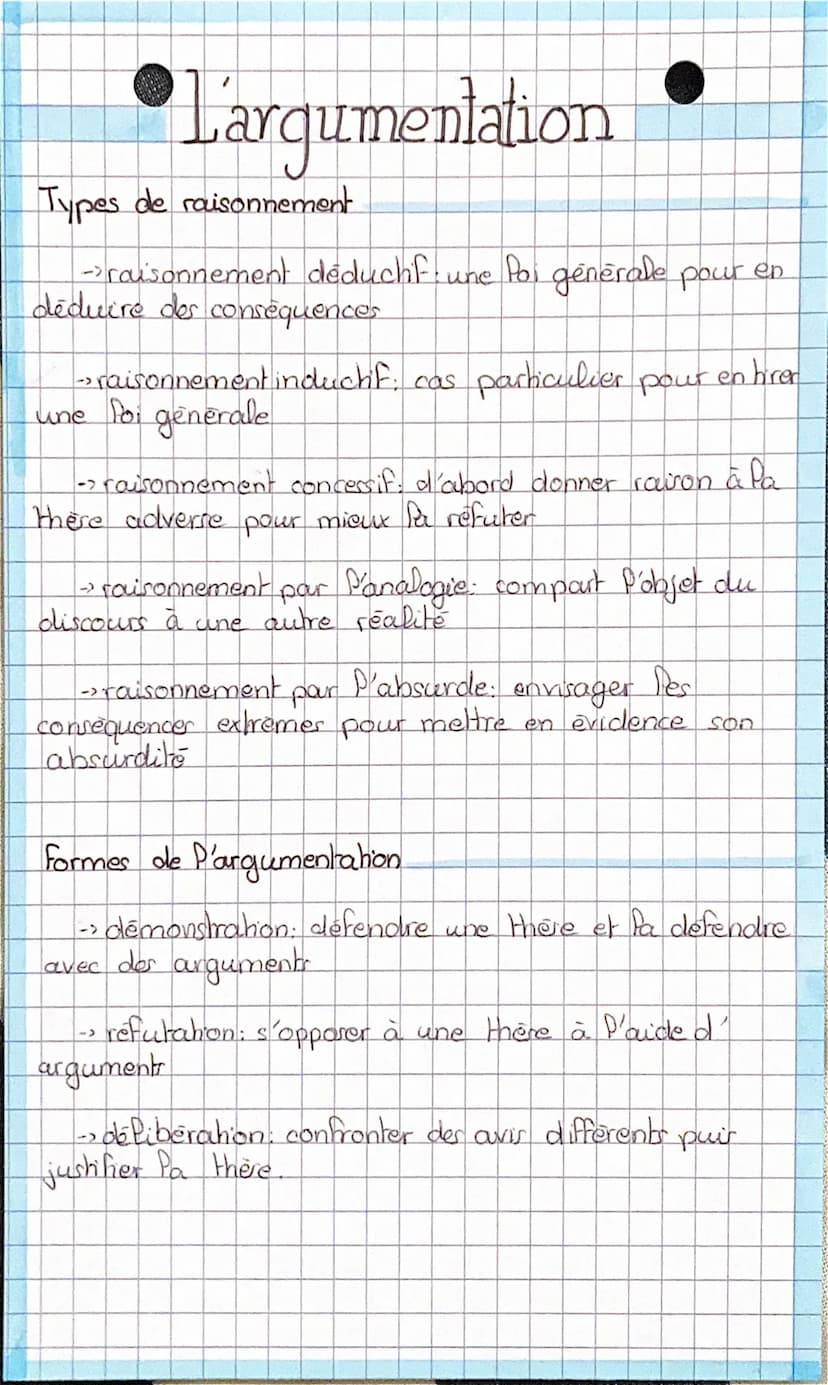 L'argumentation
Types de raisonnement
->raisonnement déductif: une loi générale pour en
déduire des conséquences
->raisonnement inductif: cas particulier pour en tirer
une loi générale
-> raisonnement concessif: d'abord donner raison à la
thèse adverse pour mieux la réfuter
-> raisonnement par l'analogie: compart l'objet du
discours à une autre réalité
->raisonnement par l'absurde: envisager les
conséquences extrêmes pour mettre en évidence son
absurdité
Formes de l'argumentation
-> démonstration: défendre une thèse et la défendre
avec des arguments
-> réfutation: s'opposer à une thèse à l'aide d'
arguments
-> délibération: confronter des avis différents puis
justifier la thèse.